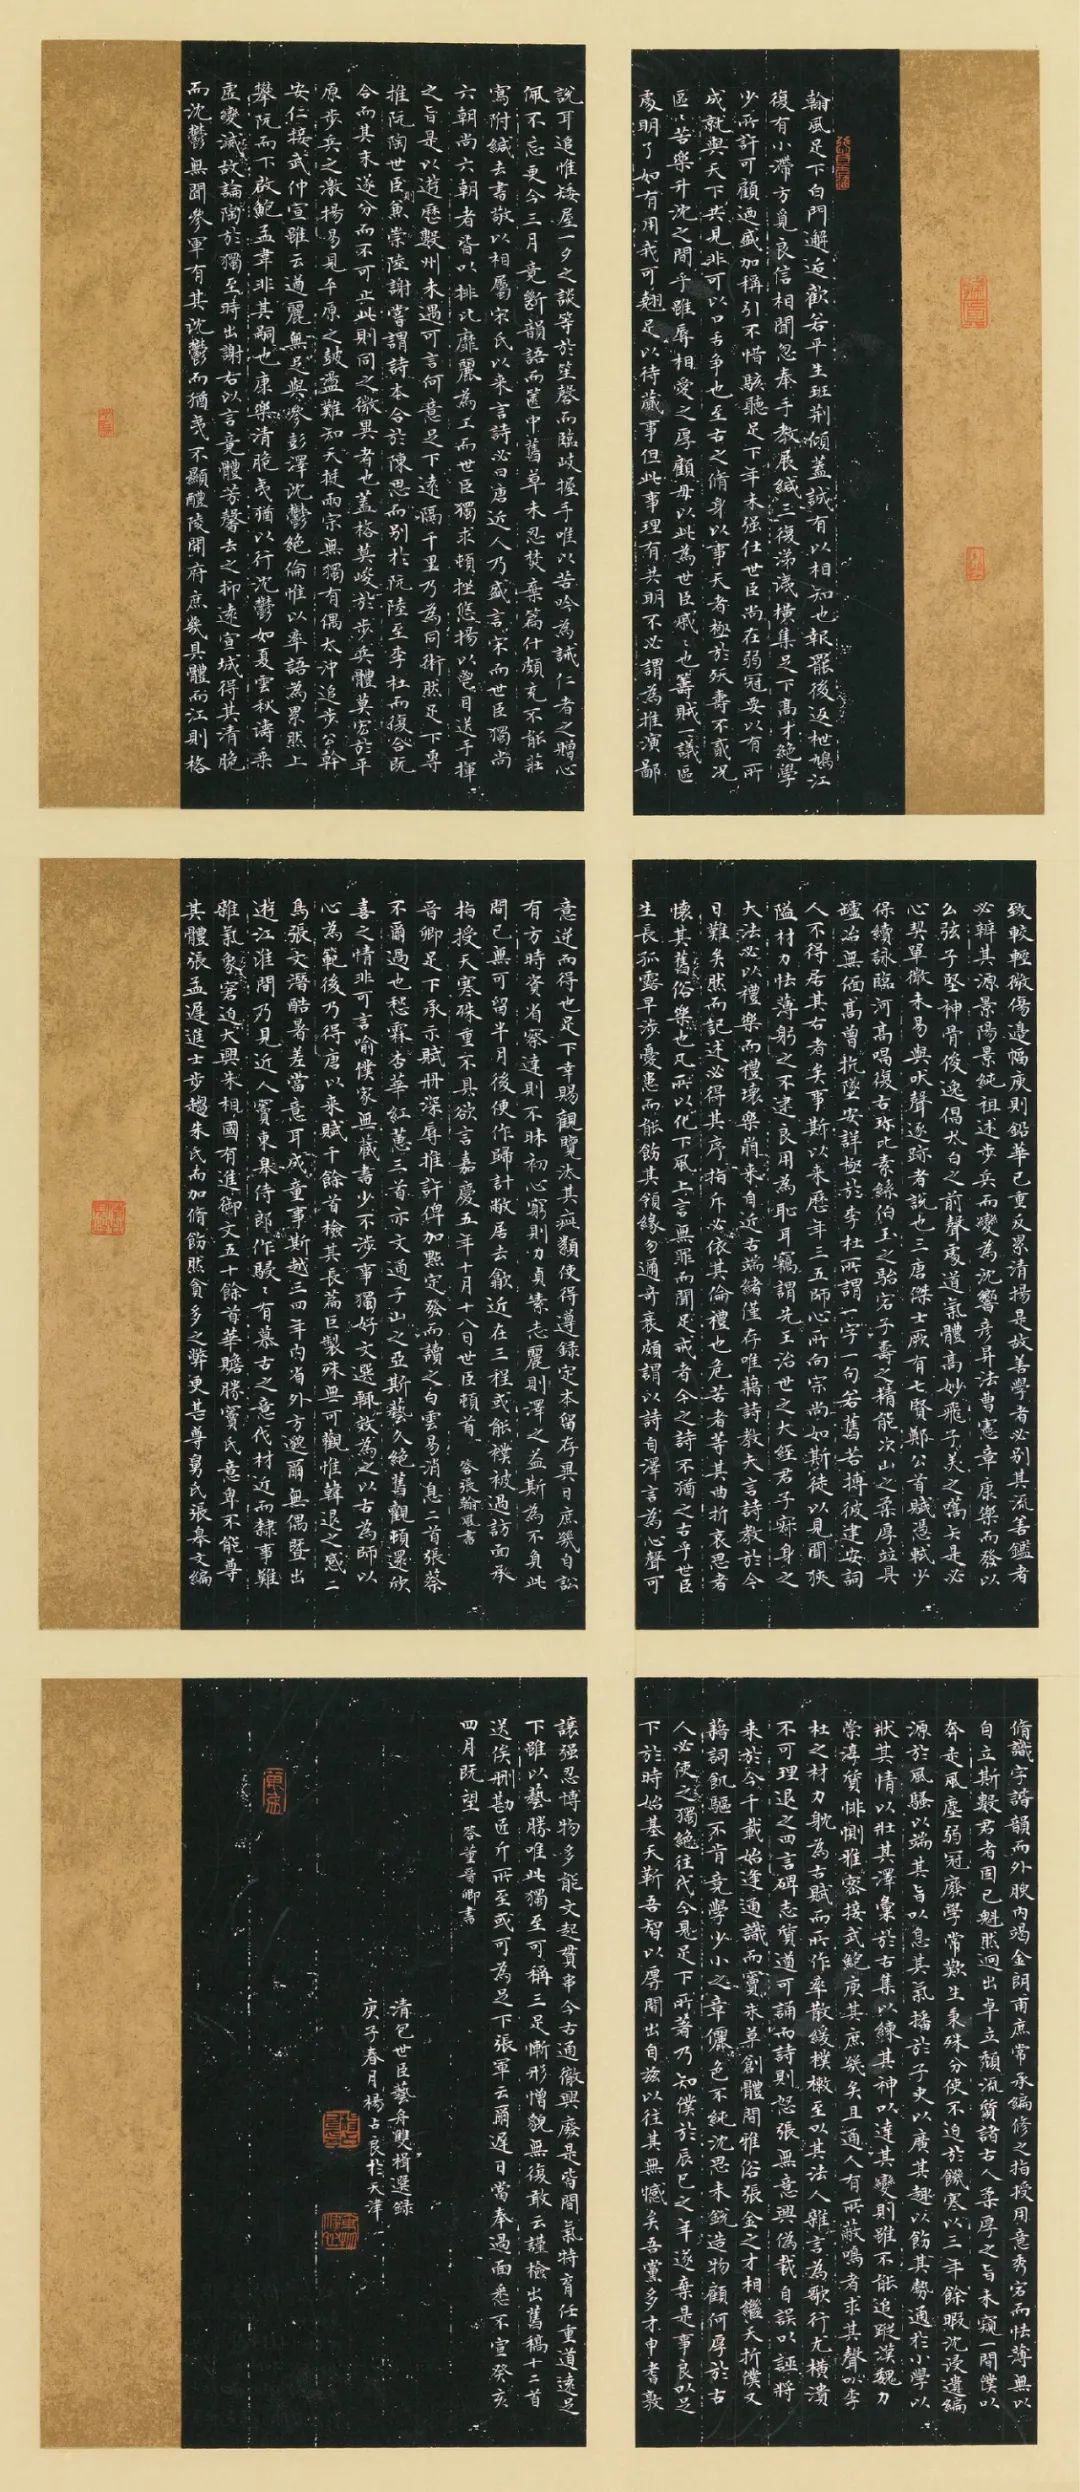 翰風足下白門邂逅歡若平生班荆傾蓋誠有以相知也報罷後返枻鳩江
復有小滯方覓良信相聞忽奉手教展緘三復涕淚橫集足下高才絕學
少所許可顧過盛加稱引不惜駭聽足下年未强仕世臣尚在弱冠要以有所
成就與天下共見非可以口舌爭也至古之脩身以事天者極於殀壽不貳况
區〻苦樂升沈之間乎雖辱相愛之厚顧毋以此為世臣戚〻也籌賊一議區
處明了如有用我可翹足以待蕆事但此事理有共明不必謂為推演鄙
說耳追惟矮屋一夕之談等於笙磬而臨歧握手唯以苦吟為誡仁者之贈心
佩不忘更今三月竟斷韻語而篋中舊草未忍焚棄篇什頗充不能莊
寫附緘去書敬以相屬宋氏以來言詩必曰唐近人乃盛言宋而世臣獨尚
六朝尚六朝者皆以排比靡麗為工而世臣獨求頓挫悠揚以鬯目送手揮
之旨是以遊歷數州未遇可言何意足下遠隔千里乃為同術然足下專
推阮陶世臣兼崇陸謝嘗謂詩本合於陳思而別於阮陸至李杜而復合既
合而其末遂分而不可止此則同之微異者也蓋格莫峻於步兵體莫宏於平
原步兵之激揚易見平原之鼓盪難知天挺兩宗無獨有偶太沖追步公幹
安仁接武仲宣雖云遒麗無足與參彭澤沈鬱絕倫惟以率語為累然上
攀阮而下啟鮑孟韋非其嗣也康樂清脆夷猶以行沈鬱如夏雲秋濤乘
虛變滅故論陶於獨至時出謝右以言竟體芳馨去之抑遠宣城得其清脆
而沈鬱無聞參軍有其沈鬱而猶夷不顯醴陵開府庶幾具體而江則格
致較輕微傷邊幅庾則鉛華已重反累清揚是故善學者必別其流善鑑者
必辨其源景陽景純祖述步兵而變為沈響彥昇法曹憲章康樂而發以
么弦子堅神骨俊逸倡太白之前聲處道氣體高妙飛子美之嚆矢是必
心契單微未易與吠聲逐跡者說也三唐傑士厥有七賢鄭公首賦慿軾少
保續詠臨河高唱復古珎比素絲伯玉之駘宕子壽之精能次山之柔厚竝具
壚冶無愐高曾抗墜安詳極於李杜所謂一字一句若舊苦摶彼建安詞
人不得居其右者矣事斯以來歷年三五師心所向宗尚如斯徒以見聞狹
隘材力怯薄躬之不逮良用為恥耳竊謂先王治世之大經君子淑身之
大法必以禮樂而禮壞樂崩来自近古端緒僅存唯藉詩教夫言詩教於今
日難矣然而記述必得其序指斥必依其倫禮也危苦者等其曲折哀思者
懷其舊俗樂也凡所以化下風上言無罪而聞足戒者今之詩不猶之古乎世臣
生長孤露早涉憂患而能飭其領緣勿邇奇衺頗謂以詩自澤言為心聲可
意逆而得也足下幸賜觀覽汰其疵纇使得遵錄定本留存異日庶幾白訟
有方時資省察達則不昧初心窮則力貞素志麗則澤之益斯為不負此
間已無可留半月後便作歸計敝居去歙近在三程或能襆被過訪面承
指授天寒殊重不具欲言嘉慶五年十月十八日世臣頓首 答張翰風書
晉卿足下承示賦冊深辱推許俾加點定發而讀之白雲易消息二首張蔡
不爾過也愁霖杏華紅蕙三首亦文通子山之亞斯藝久絕舊觀頓還欣
喜之情非可言喻僕家無藏書少不涉事獨好文選輒效為之以古為師以
心為範後乃得唐以來賦千餘首檢其長篇巨製殊無可觀惟韓退之感二
鳥張文潛酷暑差當意耳成童事斯越三四年內省外方邈爾無偶暨出
遊江淮間乃見近人竇東皋侍郎作駸〻有慕古之意代材近而隸事雖
雜氣象窘迫大興朱相國有進御文五十餘首華贍勝竇氏意卑不能尊
其體張孟遲進士步趨朱氏而加脩飭然貪多之弊更甚尊舅氏張皋文編
脩識字諧韻而外腴內竭金朗甫庶常承編修之指授用意秀宕而怯薄無以
自立斯數君者固已魁然迥出卓立頹流質諸古人柔厚之旨未窺一間僕以
奔走風塵弱冠廢學常歎生秉殊分使不迫於饑寒以三年餘暇沈浸遺編
源於風騷以端其旨以息其氣播於子史以廣其趣以飭其勢通於小學以
狀其情以壯其澤彙於古集以練其神以達其變則雖不能追蹤漢魏力
崇淳質悱惻雅密接武鮑庾其庶幾矣且通人有所蔽鳴者求其聲以李
杜之材力躭為古賦而所作率散緩樸樕至以其法人雜言為歌行尤橫潰
不可理退之四言碑志質遒可誦而詩則怒張無意興偽載自誤以誣將
来於今千載始逢通識而竇朱草創體間雅俗張金之才相繼夭折僕又
藉詞飢驅不肯竟學少小之章儷色不純沈思未銳造物顧何厚於古
人必使之獨絕往代今見足下所著乃知僕於辰巳之年遂棄是事良以足
下於時始基天靳吾智以厚間出自茲以往其無憾矣吾黨多才申耆敦
讓强忍博物多能文起貫串今古通徹興廢是皆間氣特育任重道遠足
下雖以藝勝唯此獨至可稱三足慚形憎貌無復敢云謹檢出舊稿十二首
送俟刪勘匠斤所至或可為足下張軍云爾遲日當奉過面悉不宣癸亥
四月既望 答董晉卿書
清包世臣藝舟雙楫選錄
庚子春月楊占良於天津